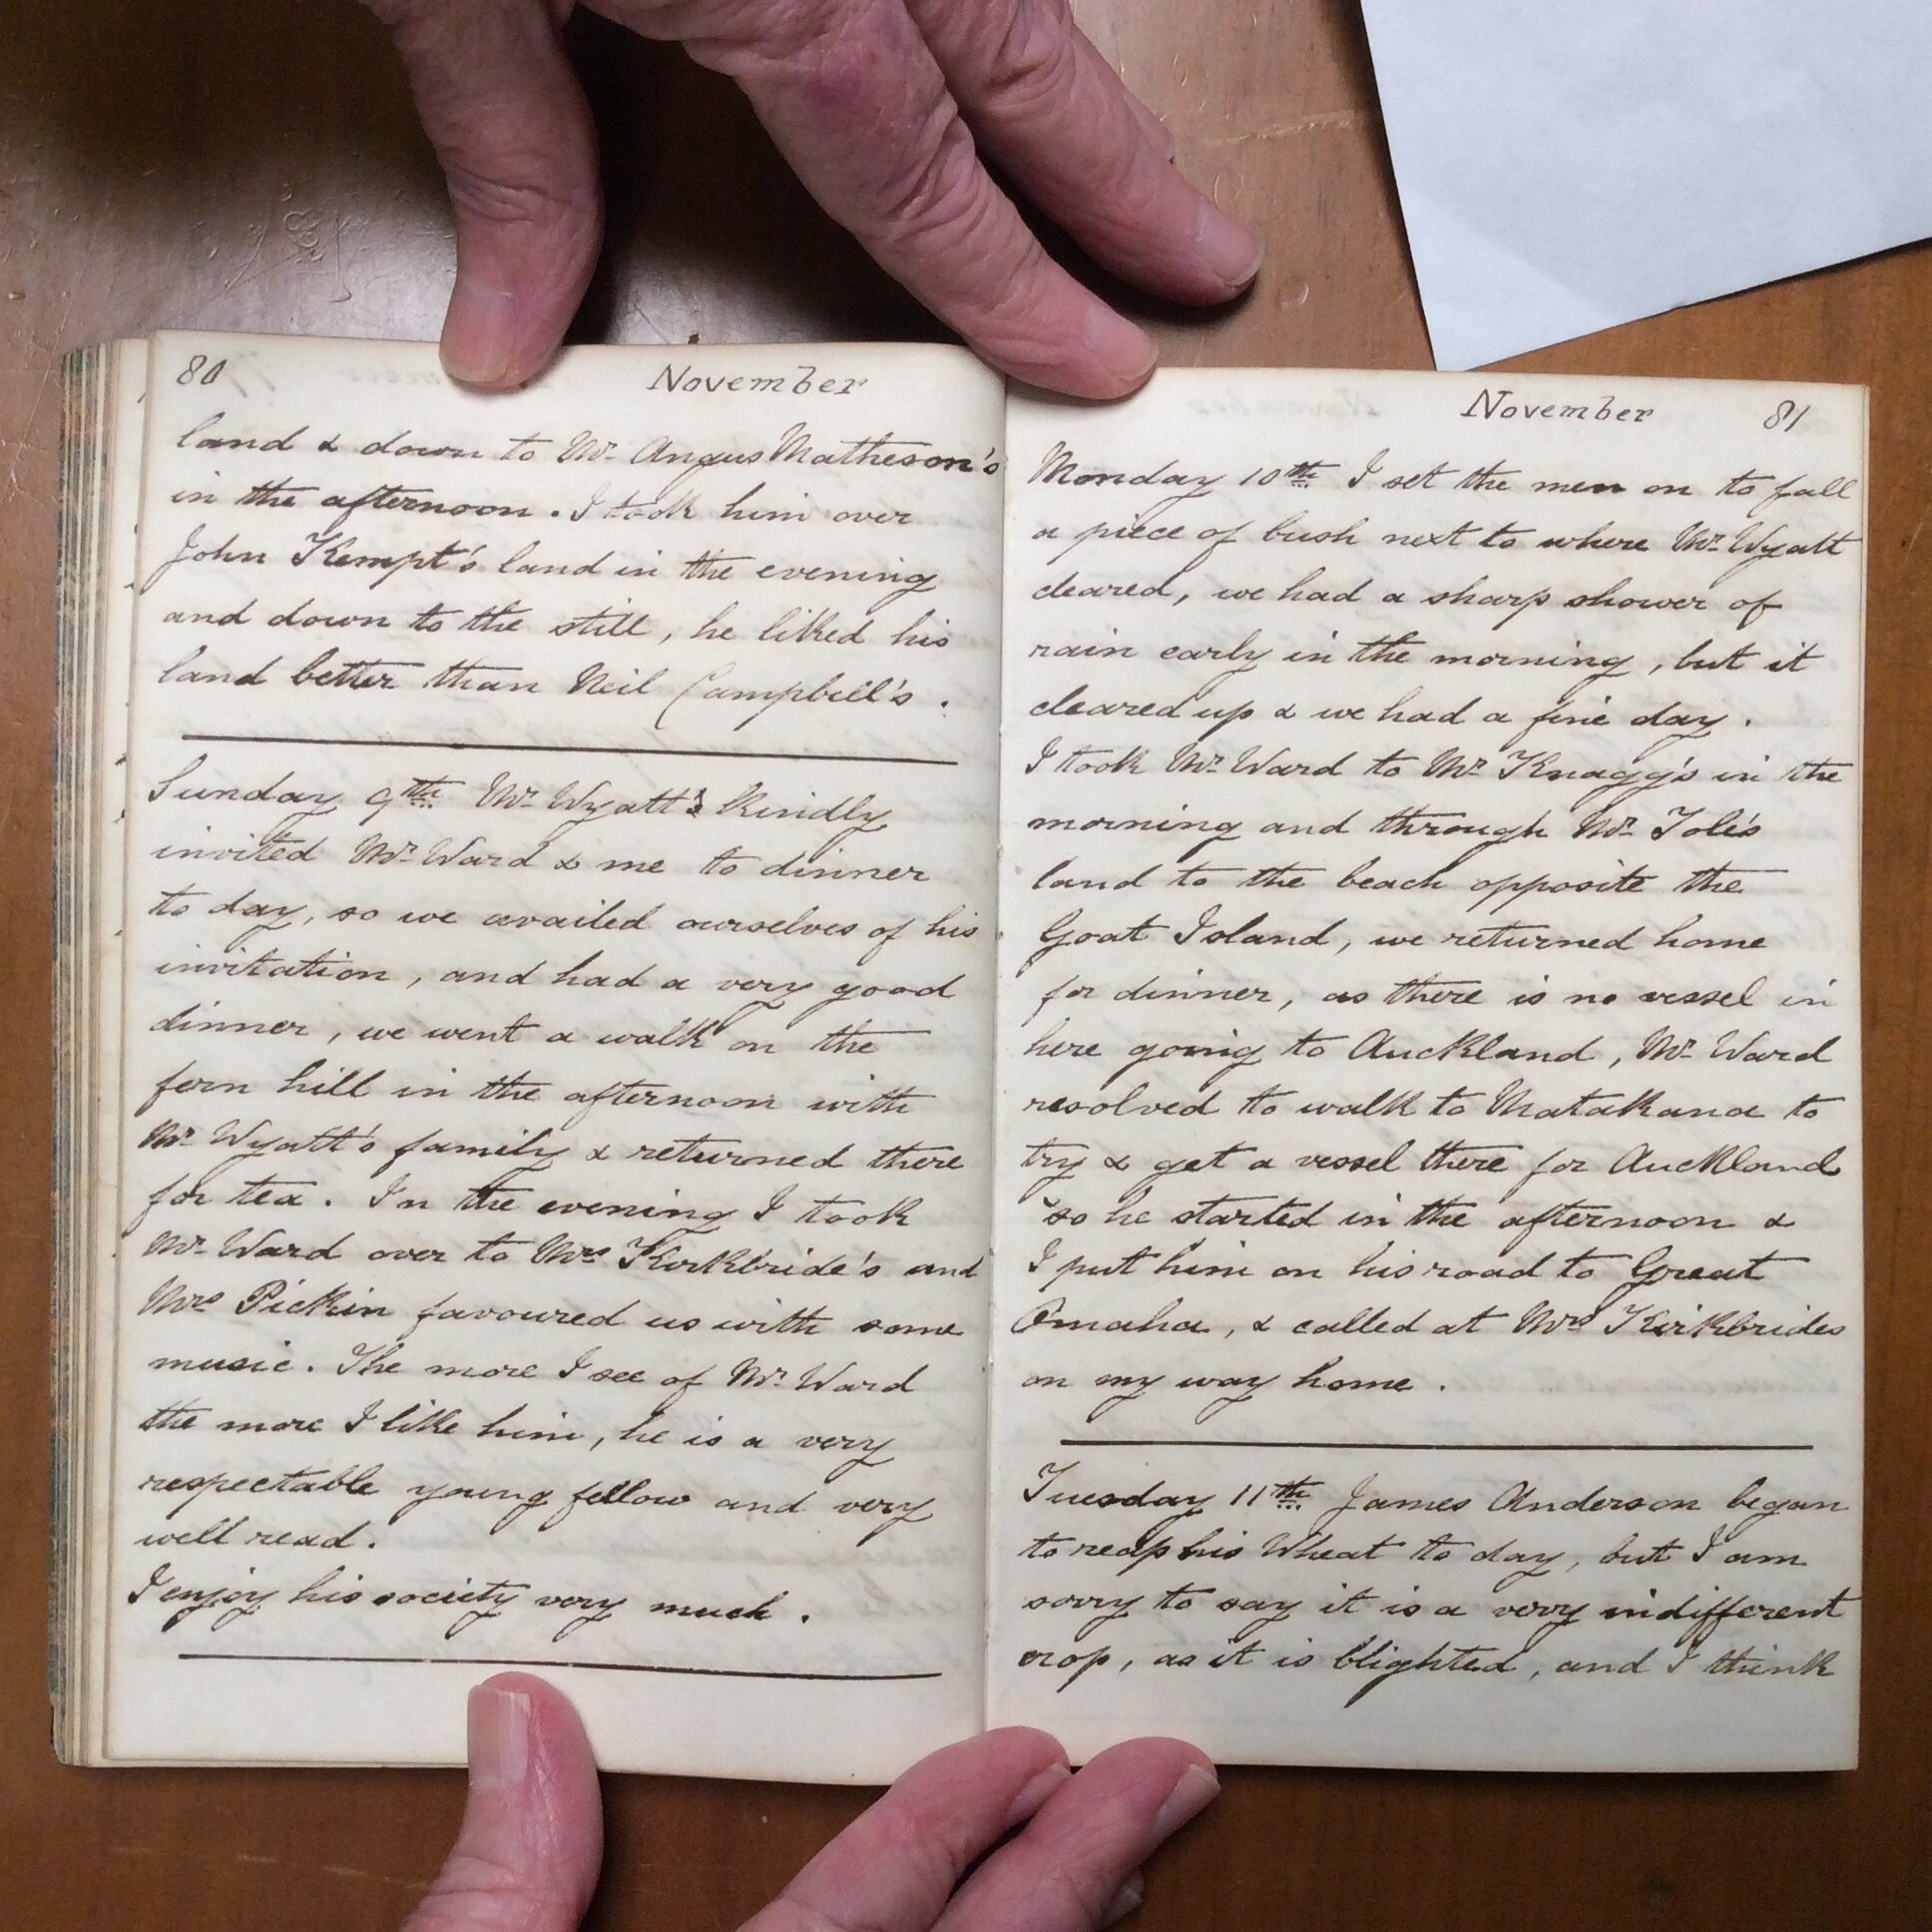 80 November
land & down to Mr. Angus Matheson's
in the afternoon. I took him over
John Kempt's land in the evening
and down to the still, he liked his
land better than Neil Campbell's.
Sunday 9th Mr. Wyatt's kindly
invited Mr. Ward & me to dinner
to day, so we availed ourselves of his
invitation, and had a very good
dinner, we went a walk on the
fern hill in the afternoon with
Mr. Wyatt's family & returned there
for tea. In the evening I took
Mr. Ward over to Mrs Kirkbride's and
Mrs Pickin favoured us with some
music. The more I see of Mr. Ward
the more I like him, he is a very
respectable young fellow and very
well read.
I enjoy his society very much.
November 81
Monday 10th I set the men on to fall
a piece of bush next to where Mr. Wyatt
cleared, we had a sharp shower of
rain early in the morning, but it
cleared up & we had a fine day.
I took Mr. Ward to Mr. Knagg's in the
morning and through Mr. Tole's
land to the beach opposite the
Goat Island, we returned home
for dinner, as there is no vessel in
here going to Auckland, Mr. Ward
resolved to walk to Matakana to
try & get a vessel there for Auckland
so he started in the afternoon &
I put him on his road to Great
Omaha, & called at Mrs Kirkbrides
on my way home.
Tuesday 11th James Anderson began
to reap his Wheat to day, but I am
sorry to say it is a very indifferent
crop, as it is blighted, and I think